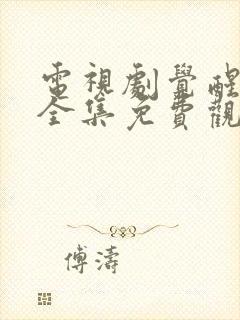 電視劇覺醒
全集免費觀
傅濤